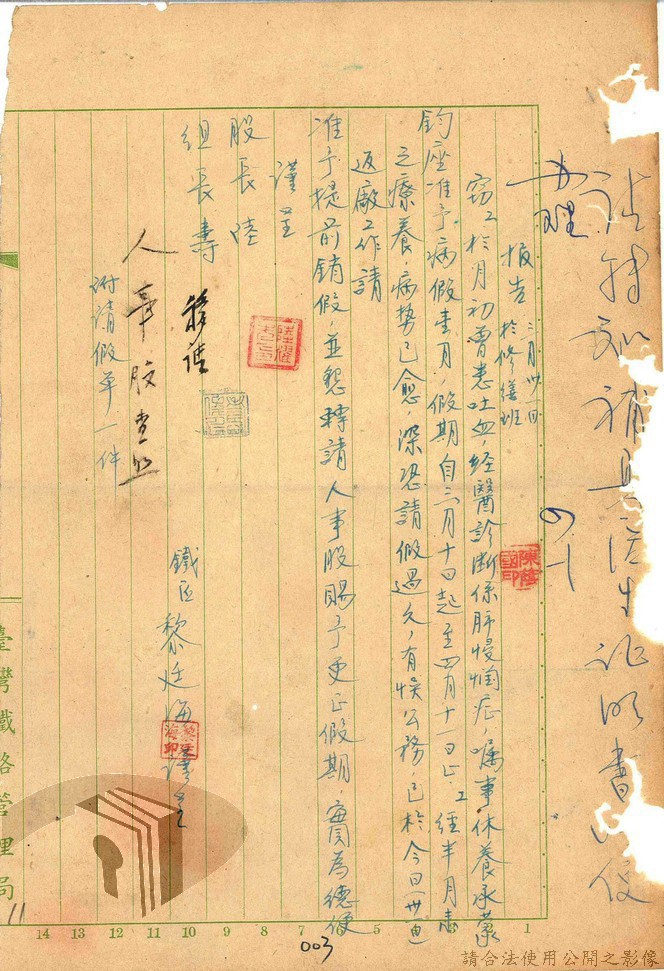 請轉知補具醫生證明書以便
辦理
四、一
報告 三月卅一日 於修繕班
竊工於月初曾患吐血,經醫診斷係肺慢惱症,囑事休養承蒙
鈞座准予病假壹月,假期自三月十一日起至四月十一日止,工經半月
之療養,病勢已愈,深恐請假過久,有悞公務,已於今日(卅一)
返廠工作請
准予提前銷假,並懇轉請人事股賜予更正假期,實為德便
謹呈
股長陸
組長壽
鐵匠黎廷海謹呈
人事股查照
附請假單一件
臺灣鐵路管理局
14 13 12 11 10 9 8 7 6 5 4 3 2 1
003
11
請合法使用公開之影像